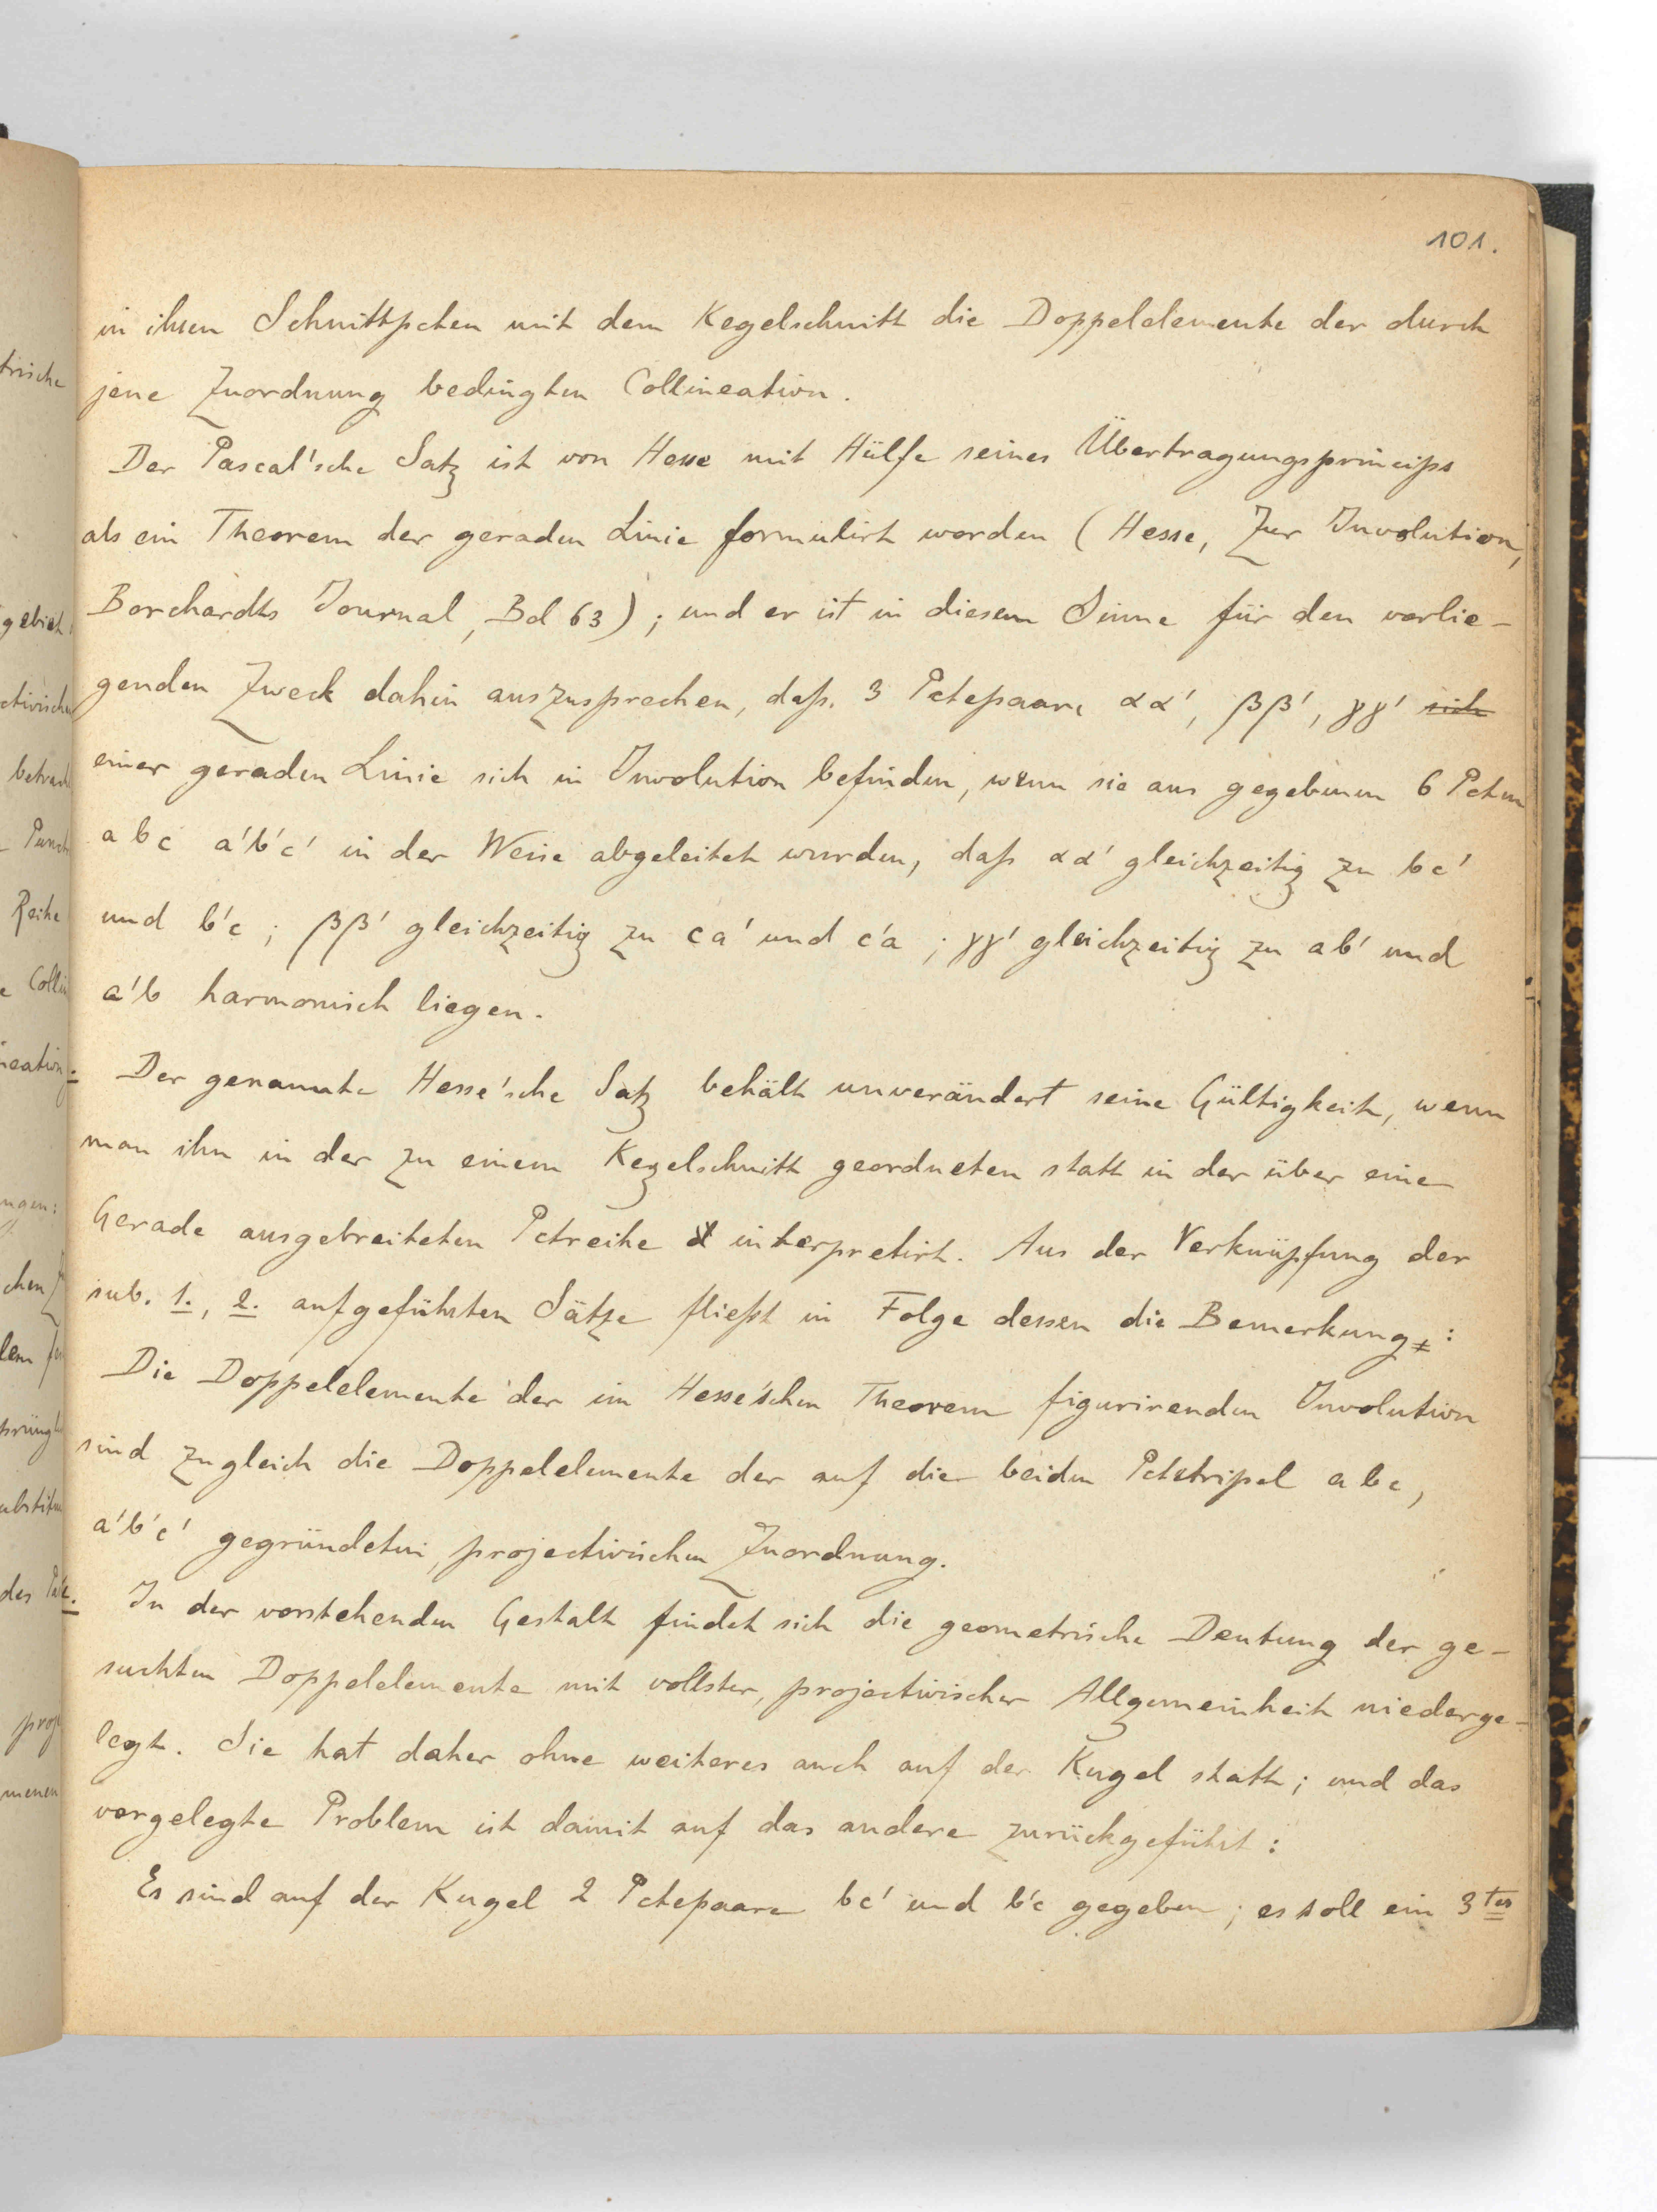 101.
in ihren Schnittpcten mit dem Kegelschnitt die Doppelelemente der durch
jene Zuordnung bedingten Collineation.
Der Pascal'sche Satz ist von Hesse mit Hülfe seines Übertragungsprincips
als ein Theorem der geraden Linie formulirt worden (Hesse, Zur Involution,
Borchardts Journal, Bd 63); und er ist in diesem Sinne für den vorlie-
genden Zweck dahin auszusprechen, daß 3 Pctepaare αα', ββ', γγ' sich
einer geraden Linie sich in Involution befinden, wenn sie aus gegebenen 6 Pcten
abc a'b'c' in der Weise abgeleitet wurden, daß αα' gleichzeitig zu bc'
und b'c; ββ' gleichzeitig zu ca' und c'a; γγ' gleichzeitig zu ab' und
a'b harmonisch liegen.
Der genannte Hesse'sche Satz behält unverändert seine Gültigkeit, wenn
man ihn in der zu einem Kegelschnitt geordneten statt in der über eine
Gerade ausgebreiteten Pctreihe interpretirt. Aus der Verknüpfung der
sub. 1., 2. aufgeführten Sätze fließt in Folge dessen die Bemerkung:
Die Doppelelemente der im Hesse'schen Theorem figurirenden Involution
sind zugleich die Doppelelemente der auf die beiden Pctetripel abc,
a'b'c' gegründeten, projectivischen Zuordnung.
In der vorstehenden Gestalt findet sich die geometrische Deutung der ge-
suchten Doppelelemente mit vollster, projectivischer Allgemeinheit niederge-
legt. Sie hat daher ohne weiteres auch auf der Kugel statt; und das
vorgelegte Problem ist damit auf das andere zurückgeführt:
Es sind auf der Kugel 2 Pctepaare bc' und b'c gegeben; es soll ein 3tes